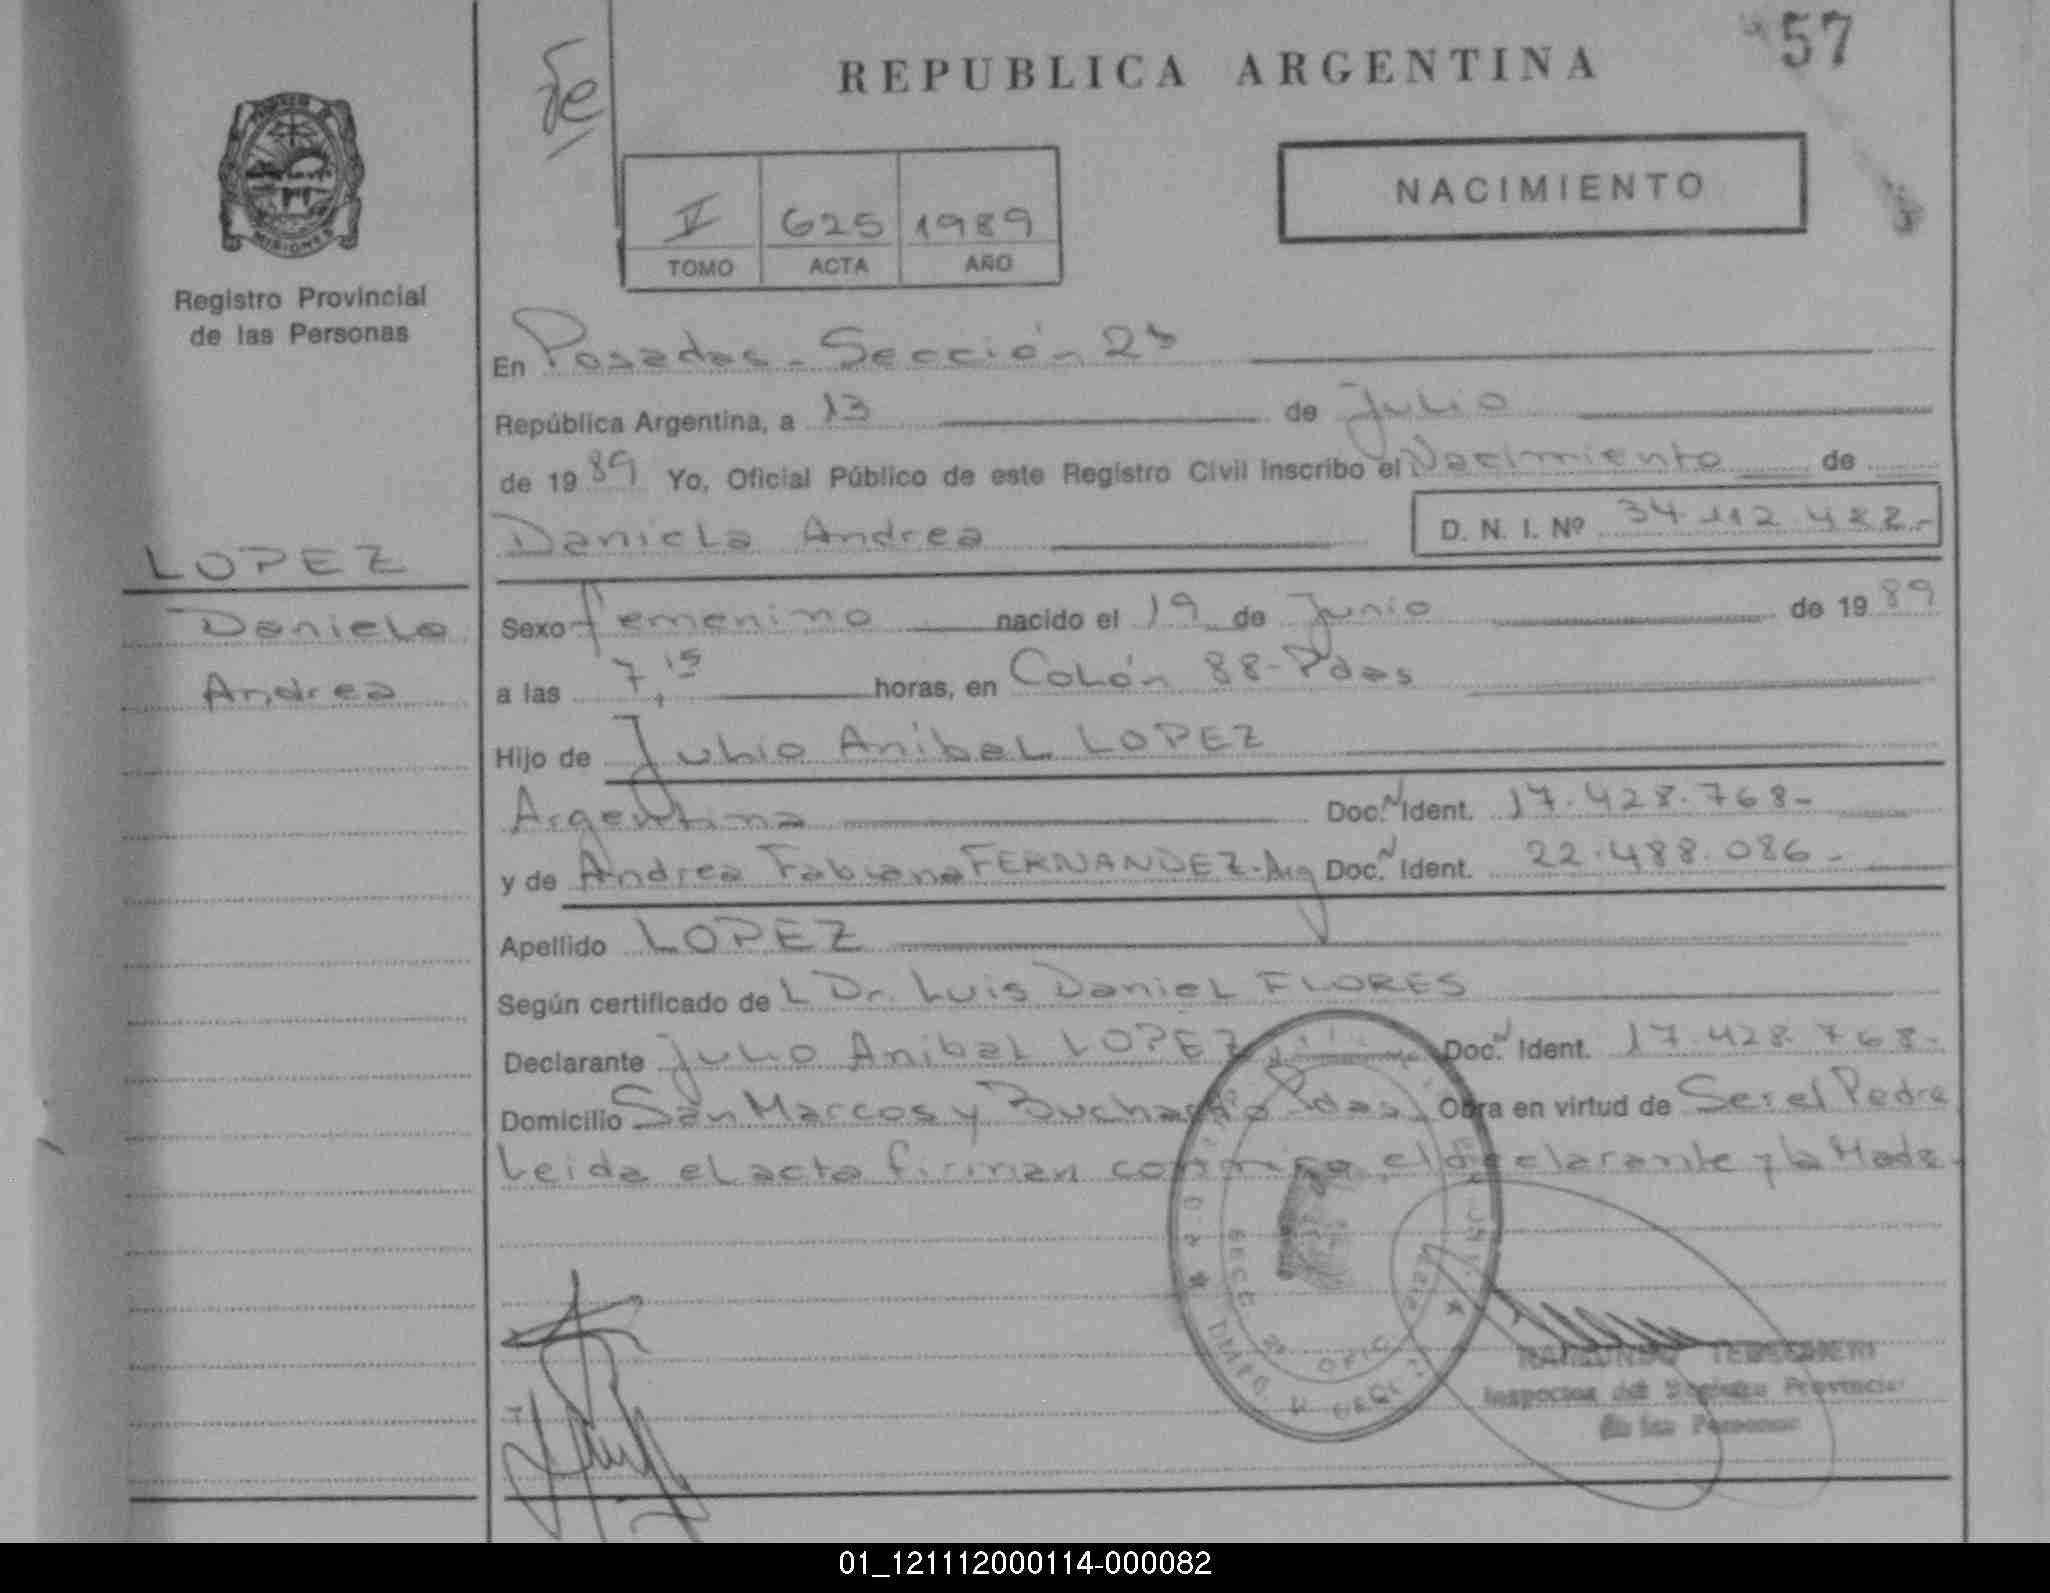 57
fe
REPUBLICA ARGENTINA
NACIMIENTO
V 625 1989
TOMO ACTA AÑO
MISIONES
Registro Provincial
de las Personas
En Posadas - Sección 2ª
República Argentina, a 13 de Julio
de 1989 Yo, Oficial Público de este Registro Civil inscribo el Nacimiento de
Daniela Andrea D. N. I. Nº 34.112.482.-
LOPEZ
Daniela
Andrea
Sexo femenino nacido el 19 de Junio de 1989
a las 7,15 horas, en Colón 88 - Pdas
Hijo de Julio Anibal LOPEZ
Argentina Doc. N Ident. 17.428.768-
y de Andrea Fabiana FERNANDEZ - Arg Doc. N Ident. 22.488.086-
Apellido LOPEZ
Según certificado de L Dr. Luis Daniel FLORES
Declarante Julio Anibal LOPEZ Doc. N Ident. 17.428.768-
Domicilio San Marcos y Buchardo Pdas. Obra en virtud de Ser el Padre
Leida el acta firman conmigo el declarante y la Madre
SECC 2ª OFIC
RAIMUNDO
Inspector del Registro Provincial
de las Personas
01_121112000114-000082